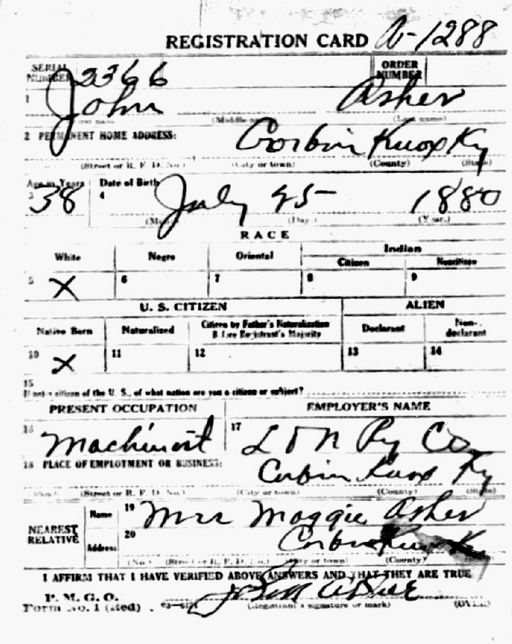 REGISTRATION CARD A-1288
SERIAL NUMBER 2366 ORDER NUMBER
1 John Asher
(Middle name) (Last name)
2 PERMANENT HOME ADDRESS: Corbin Knox Ky
(Street or R. F. D. No.) (City or town) (County) (State)
Age in Years Date of Birth
3 38 4 July 25 1880
(Day.) (Year.)
RACE
White Negro Oriental Indian
Citizen Noncitizen
5 X 6 7 8 9
U. S. CITIZEN ALIEN
Native Born Naturalized Citizen by Father's Naturalization Before Registrant's Majority Declarant Non-declarant
10 X 11 12 13 14
15
If not a citizen of the U. S., of what nation are you a citizen or subject?
PRESENT OCCUPATION EMPLOYER'S NAME
16 Machinist 17 L & N Ry Co
18 PLACE OF EMPLOYMENT OR BUSINESS: Corbin Knox Ky
(No.) (Street or R. F. D. No.) (City or town) (County) (State)
NEAREST RELATIVE Name 19 Mrs Maggie Asher
Address 20 Corbin Knox Ky
(No.) (Street or R. F. D. No.) (City or town) (County) (State)
I AFFIRM THAT I HAVE VERIFIED ABOVE ANSWERS AND THAT THEY ARE TRUE
P. M. G. O.
Form No. 1 (Red) John Asher
(Registrant's signature or mark) (OVER)